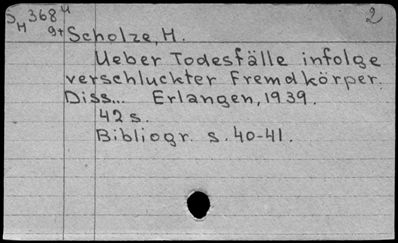 D 368 M
M 9+
2
Scholze, H.
Ueber Todesfälle infolge
verschluckter Fremdkörper.
Diss... Erlangen, 1939.
42 s.
Bibliogr. s. 40-41.